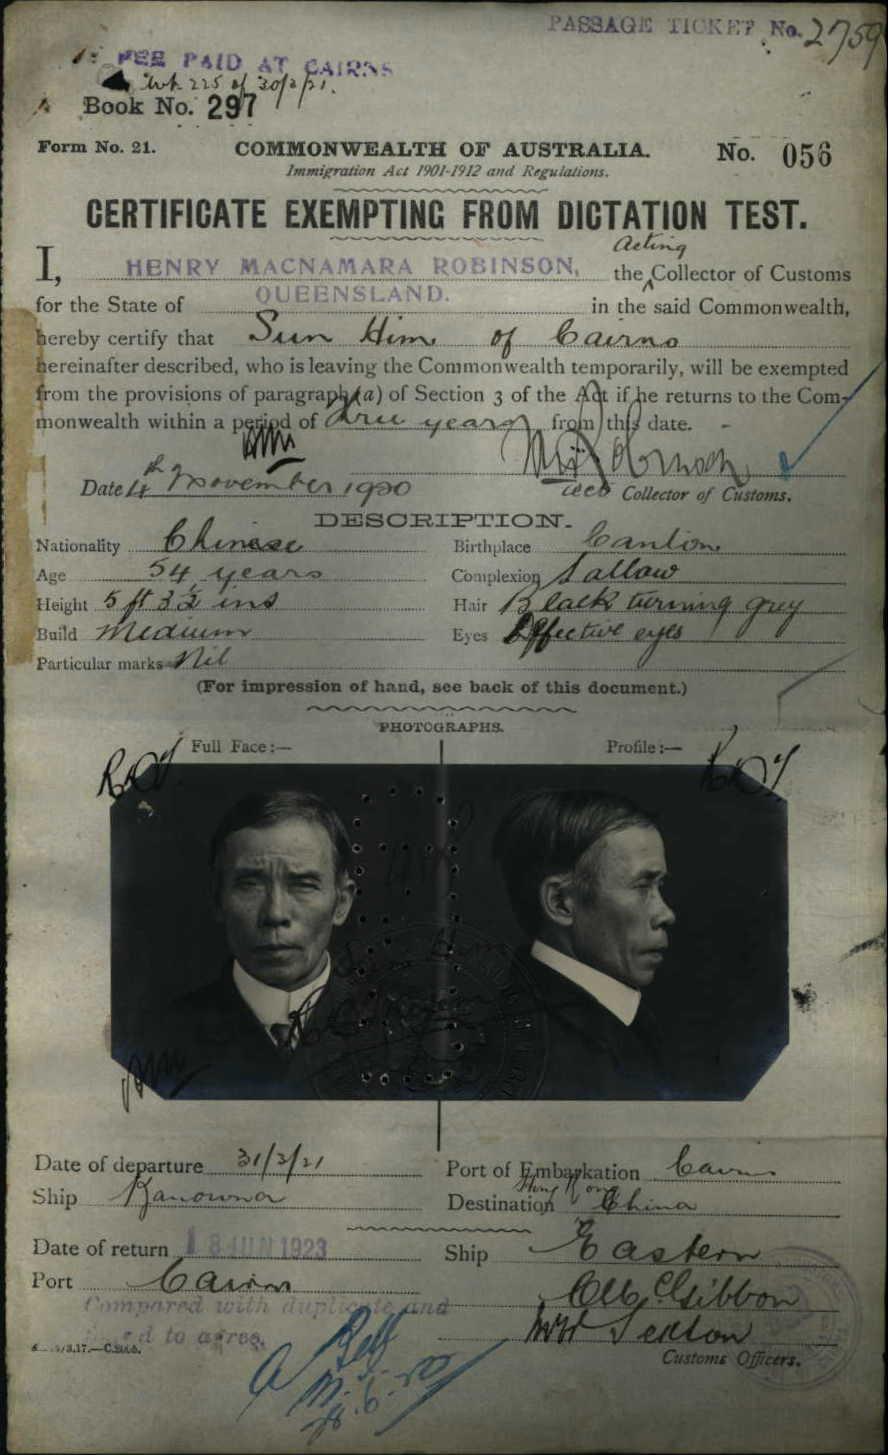 PASSAGE TICKET No. 2759
FEE PAID AT CAIRNS
225 of 30/3/21.
Book No. 297
Form No. 21.
COMMONWEALTH OF AUSTRALIA.
No. 056
Immigration Act 1901-1912 and Regulations.
CERTIFICATE EXEMPTING FROM DICTATION TEST.
I, HENRY MACNAMARA ROBINSON, the Acting Collector of Customs
for the State of QUEENSLAND. in the said Commonwealth,
hereby certify that Sun Him of Cairns
hereinafter described, who is leaving the Commonwealth temporarily, will be exempted
from the provisions of paragraph (a) of Section 3 of the Act if he returns to the Com-
monwealth within a period of three years from this date.
Date 4th November 1920
Collector of Customs.
DESCRIPTION.
Nationality Chinese Birthplace Canton
Age 54 years Complexion Sallow
Height 5 ft 3½ ins Hair Black turning grey
Build Medium Eyes Effective eyes
Particular marks Nil
(For impression of hand, see back of this document.)
PHOTOGRAPHS.
Full Face :— Profile :—
Date of departure 31/3/21 Port of Embarkation Cairns
Ship Kanowna Destination Hong Kong China
Date of return 18 JUN 1923 Ship Eastern
Port Cairns
Compared with duplicate and
to agree.
Gibbon
Sexton
Customs Officers.